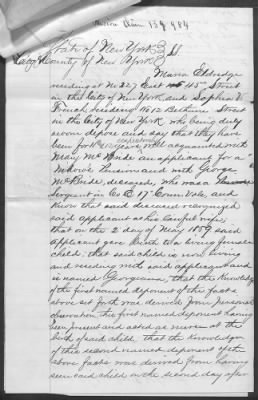 State of New York } SS
City & County of New York }
Maria Eldridge
residing at No 327 East 45 Street
in the City of New York and Sophia
French residing at No 12 Bethune Street
in the City of New York who being duly
sworn depose and say that they have
been for years well acquainted with
Mary McBride an applicant for a
Widow's Pension and with George
McBride, deceased, who was a
Sergeant in Co Conn Vols, and
know that said deceased recognized
said applicant as his lawful wife;
that on the 2 day of May 1859 said
applicant gave birth to a living female
child; that said child is now living
and residing with said applicant and
is named Georgianna, that the knowledge
of the first named deponent of the facts
above set forth was derived from personal
observation this first named deponent having
been present and acted as nurse at the
birth of said child, that the knowledge
of this second named deponent of the
above facts was derived from having
seen said child on the second day after